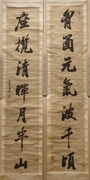 胷函元氣波千頃
座攬清暉月半山